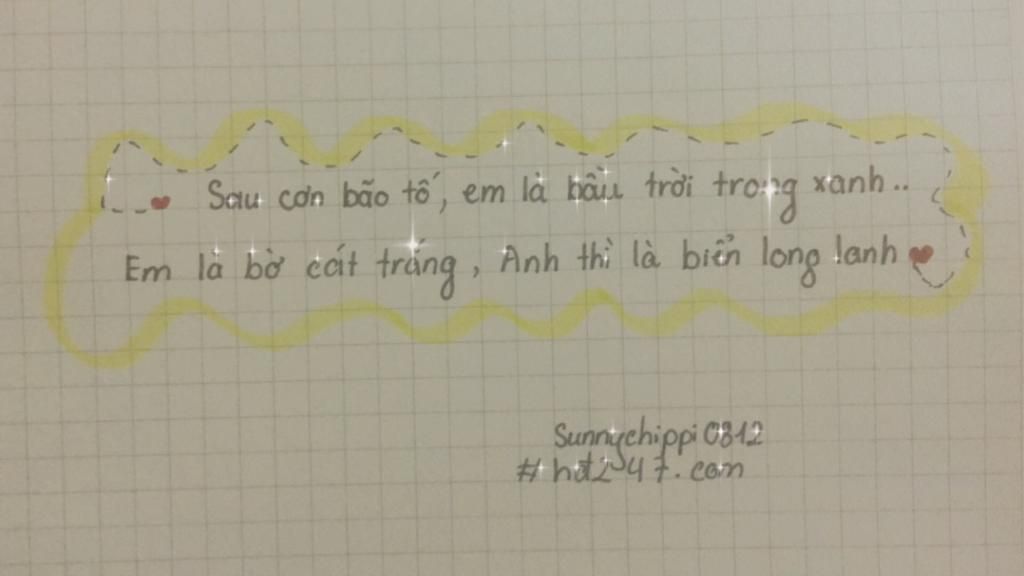 Sau cơn bão tố, em là bầu trời trong xanh..
Em là bờ cát trắng, Anh thì là biển long lanh
Sunnychippi 0812
# hot247.com